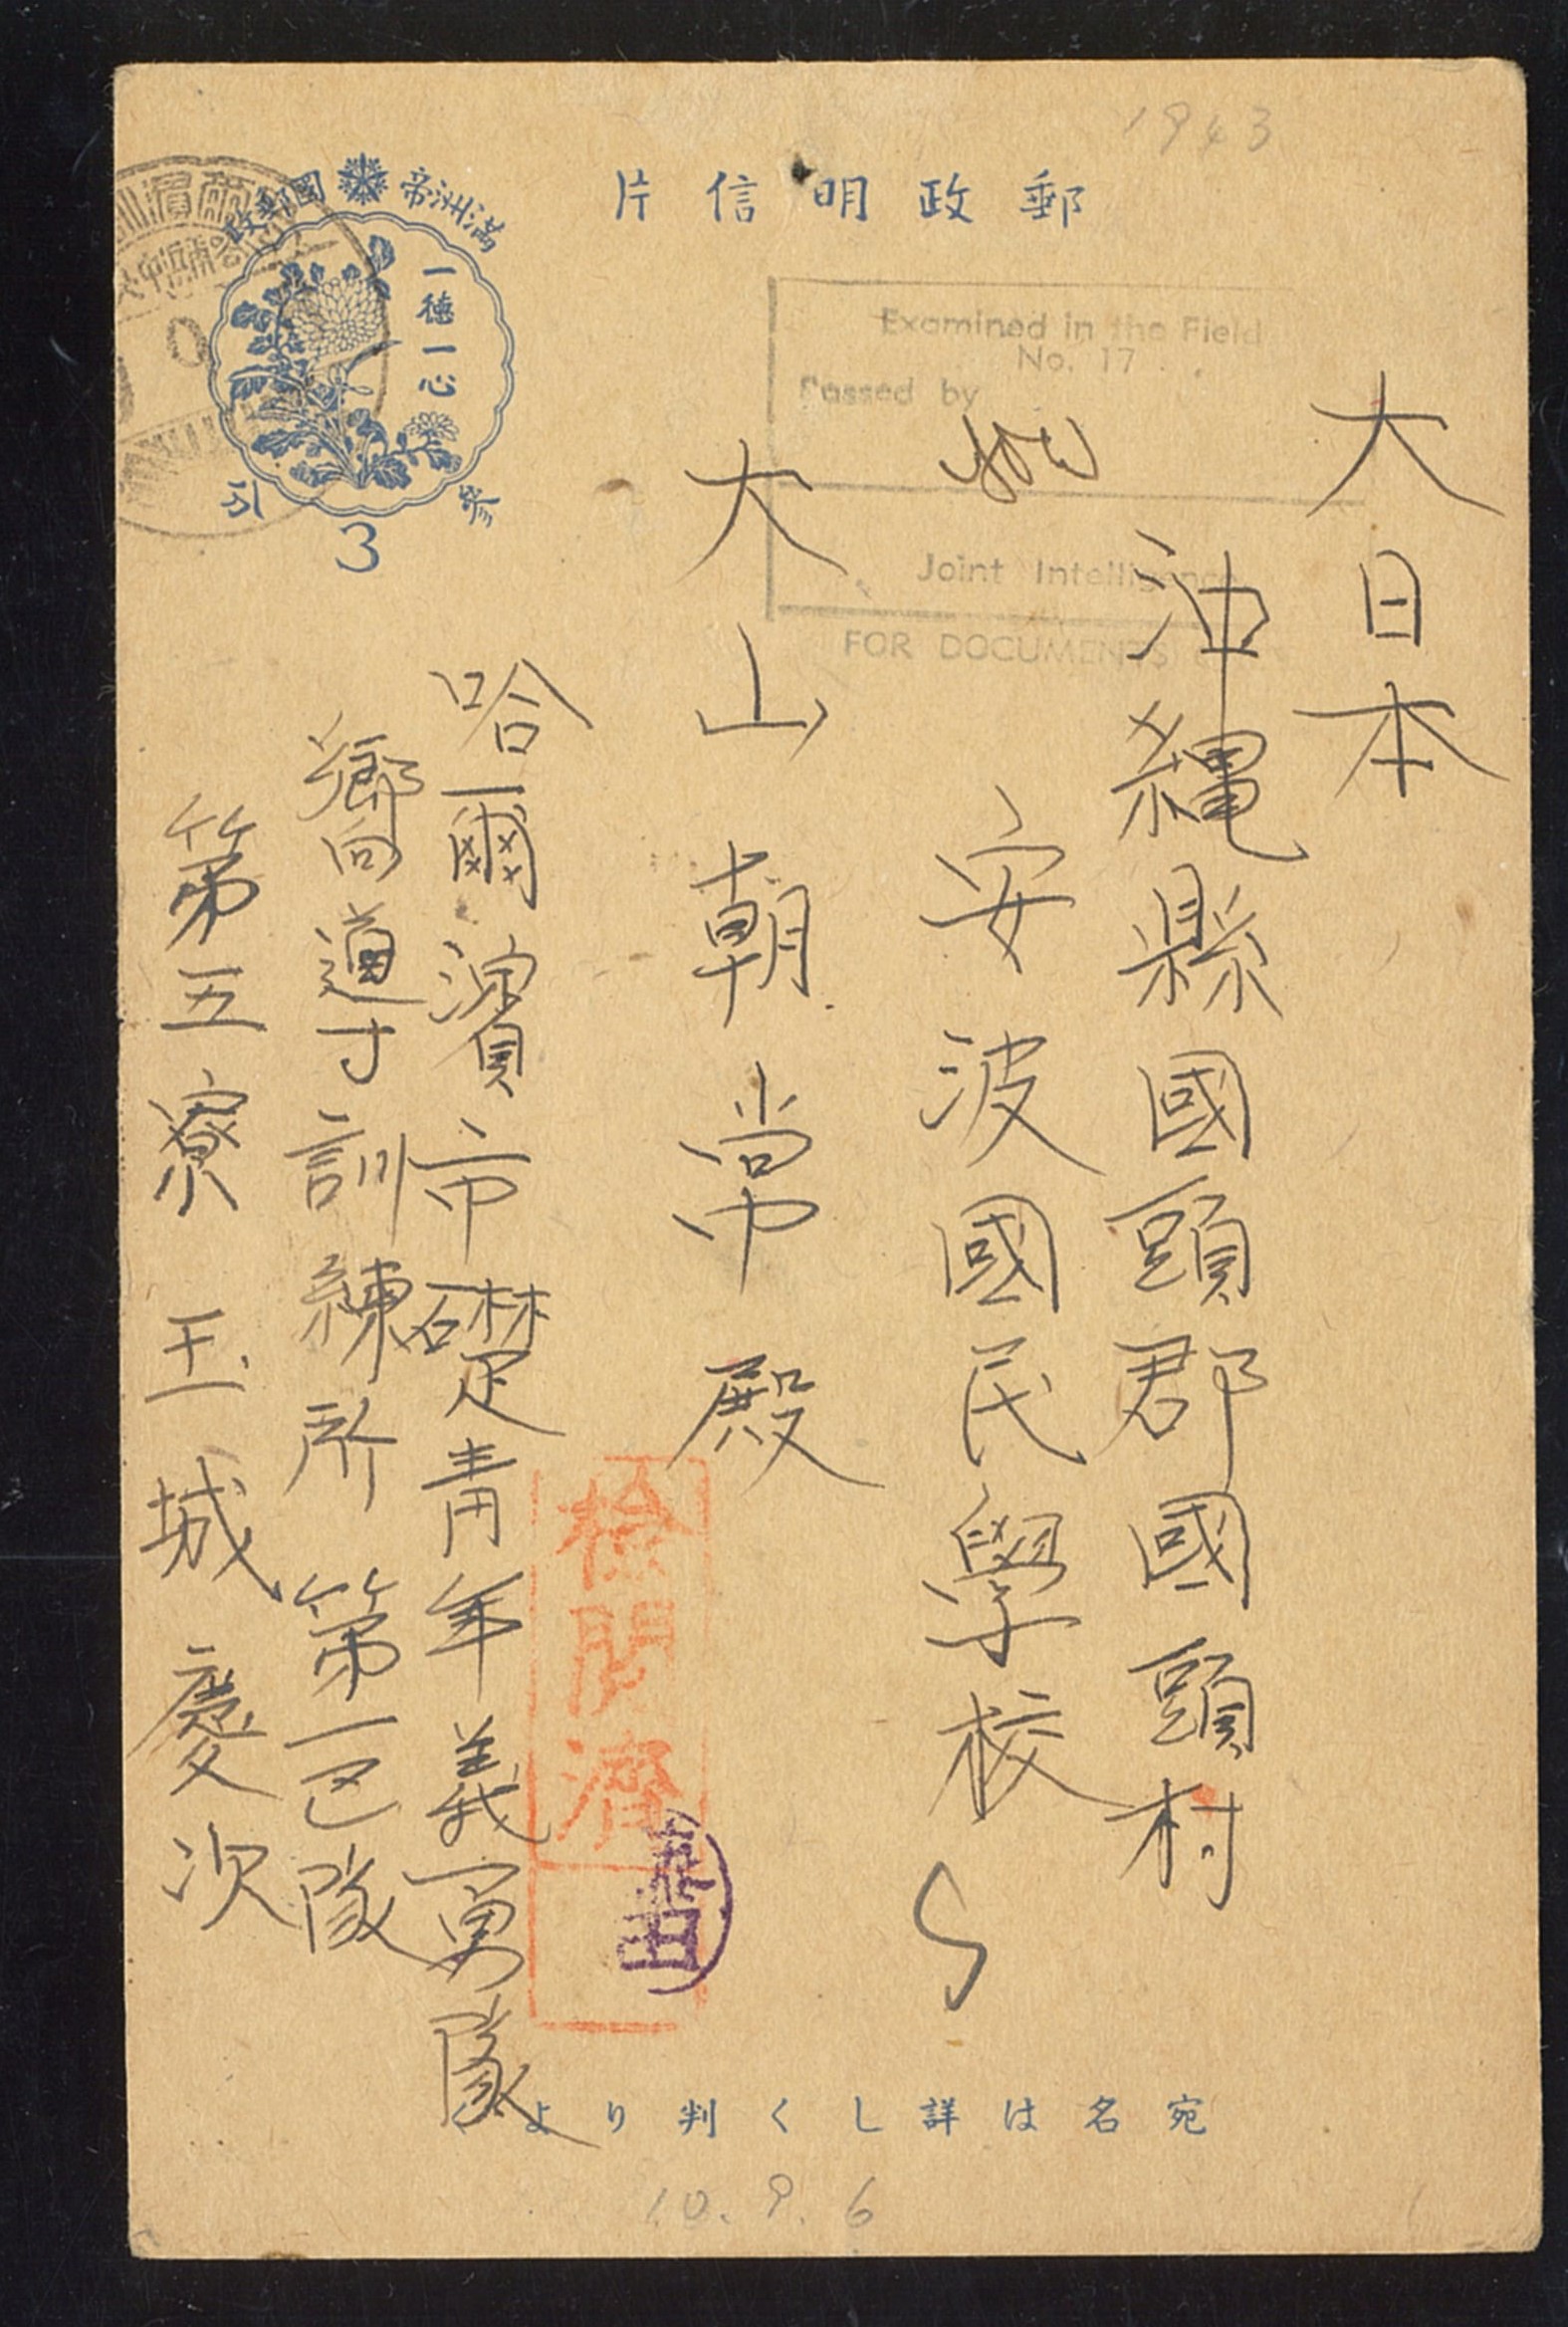 1943
片信明政郵
政郵國帝洲滿
一德一心
分參
3
Examined in the Field
No. 17
Passed by
Joint Intelligence
FOR DOCUMENTS
大日本
沖繩縣國頭郡國頭村
安波國民學校
大山朝常殿
哈爾濱市礎青年義勇隊
嚮導訓練所第一区隊
第五寮 玉城慶次
檢閲濟
より判くし詳は名宛
10.9.6